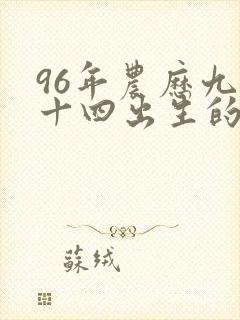 96年農歷九
十四出生的
蘇绒